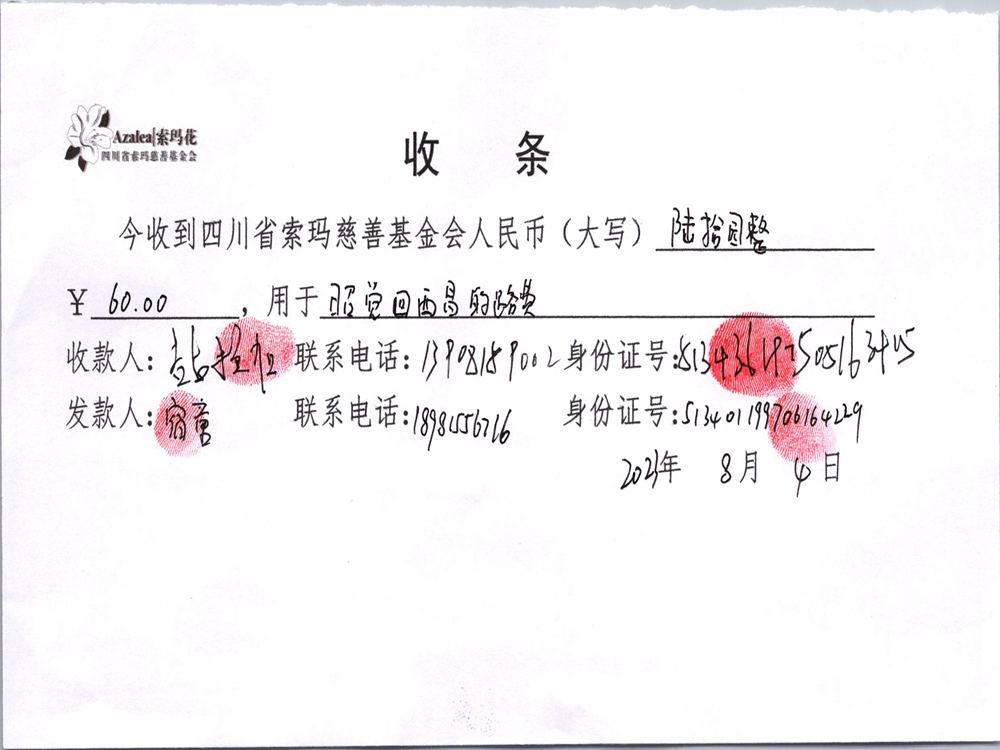 Azalea|索玛花
四川省索玛慈善基金会
收 条
今收到四川省索玛慈善基金会人民币（大写）陆拾圆整
￥ 60.00 ，用于昭觉回西昌的路费
收款人： 联系电话：13908189002 身份证号：
发款人： 联系电话：18981556716 身份证号：513401199706164229
2023年 8月 4日